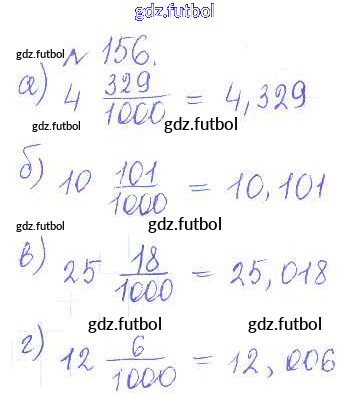 gdz.futbol
gdz.futbol № 156.
а) 4 329/1000 = 4,329
gdz.futbol gdz.futbol
б) 10 101/1000 = 10,101
gdz.futbol gdz.futbol
в) 25 18/1000 = 25,018
gdz.futbol gdz.futbol
г) 12 6/1000 = 12,006